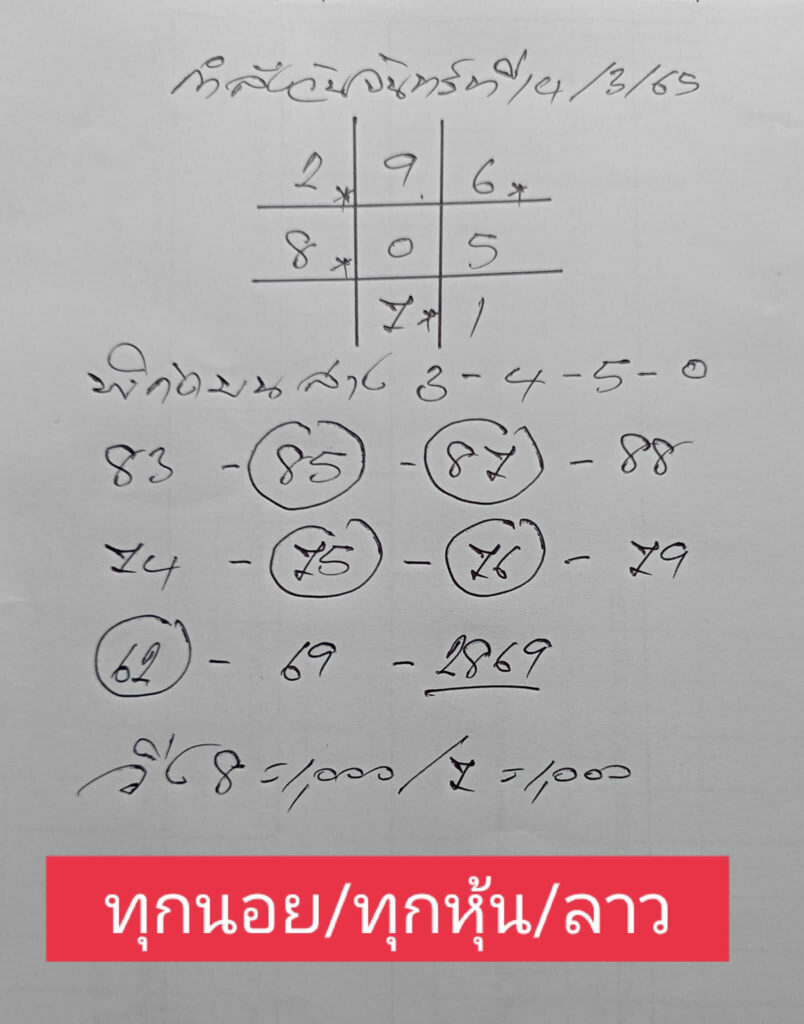 กำลังวันจันทร์ที่ 14/3/65
2* 9. 6*
8* 0 5
7* 1
พิกัดบน ล่าง 3-4-5-0
83 - 85 - 87 - 88
74 - 75 - 76 - 79
62 - 69 - 2869
วิ่ง 8 = 1,000 / 7 = 1,000
ทุกนอย/ทุกหุ้น/ลาว